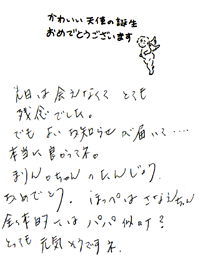 かわいい天使の誕生
おめでとうございます
先日は会えなくてとても
残念でした。
でもよいお知らせが届いて‥‥
本当に良かったネ。
まりんちゃんのたんじょう、
おめでとう。ほっぺはさなえちゃん
全体的にはパパ似カナ?
とっても元気そうですネ